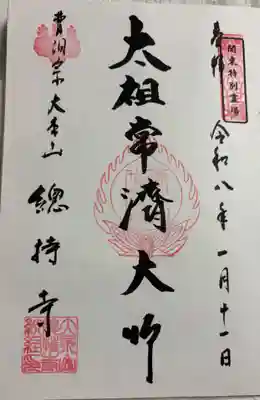 関東特別霊場
奉拝 令和八年一月十一日
太祖常濟大師
曹洞宗大本山 總持寺